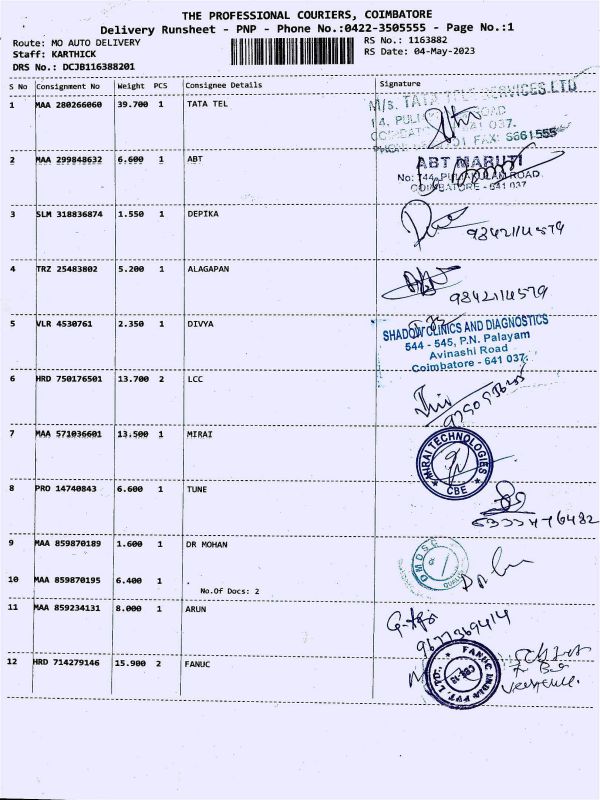 THE PROFESSIONAL COURIERS, COIMBATORE
Delivery Runsheet - PNP - Phone No.:0422-3505555 - Page No.:1
Route: MO AUTO DELIVERY
RS No.: 1163882
Staff: KARTHICK
RS Date: 04-May-2023
DRS No.: DCJB116388201
S No Consignment No Weight PCS Consignee Details Signature
1 MAA 280266060 39.700 1 TATA TEL
M/s. TATA TELE SERVICES LTD
2 MAA 299848632 6.600 1 ABT
ABT MARUTI
No: 744, PULIAKULAM ROAD,
COIMBATORE - 641 037
3 SLM 318836874 1.550 1 DEPIKA
4 TRZ 25483802 5.200 1 ALAGAPAN
5 VLR 4530761 2.350 1 DIVYA
SHADOW CLINICS AND DIAGNOSTICS
544 - 545, P.N. Palayam
Avinashi Road
Coimbatore - 641 037.
6 HRD 750176501 13.700 2 LCC
7 MAA 571036601 13.500 1 MIRAI
MIRAI TECHNOLOGIES
CBE
8 PRO 14740843 6.600 1 TUNE
9 MAA 859870189 1.600 1 DR MOHAN
10 MAA 859870195 6.400 1 .
No.Of Docs: 2
11 MAA 859234131 8.000 1 ARUN
9677369414
12 HRD 714279146 15.900 2 FANUC
FANUC INDIA PVT. LTD.